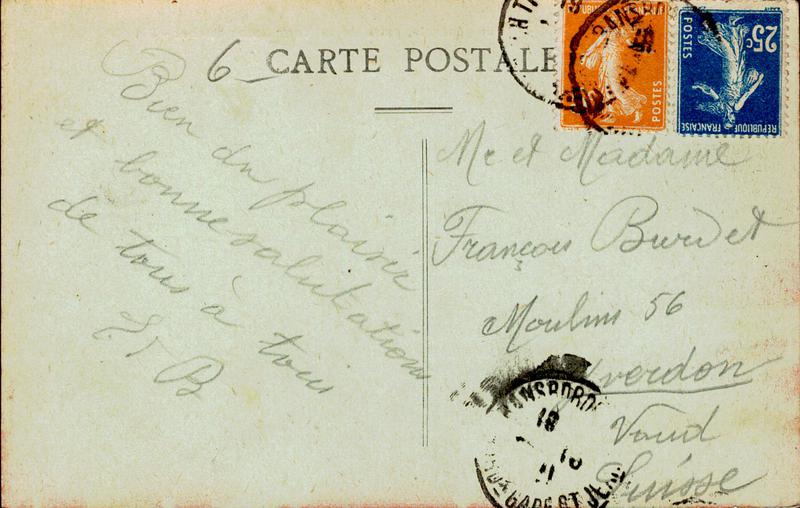 6
CARTE POSTALE
Bien du plaisir
et bonne salutations
de tous à tous
25c
POSTES
RÉPUBLIQUE FRANÇAISE
POSTES
Mr et Madame
François Burdet
Moulins 56
Yverdon
Vaud
Suisse
18
GARE ST JEAN